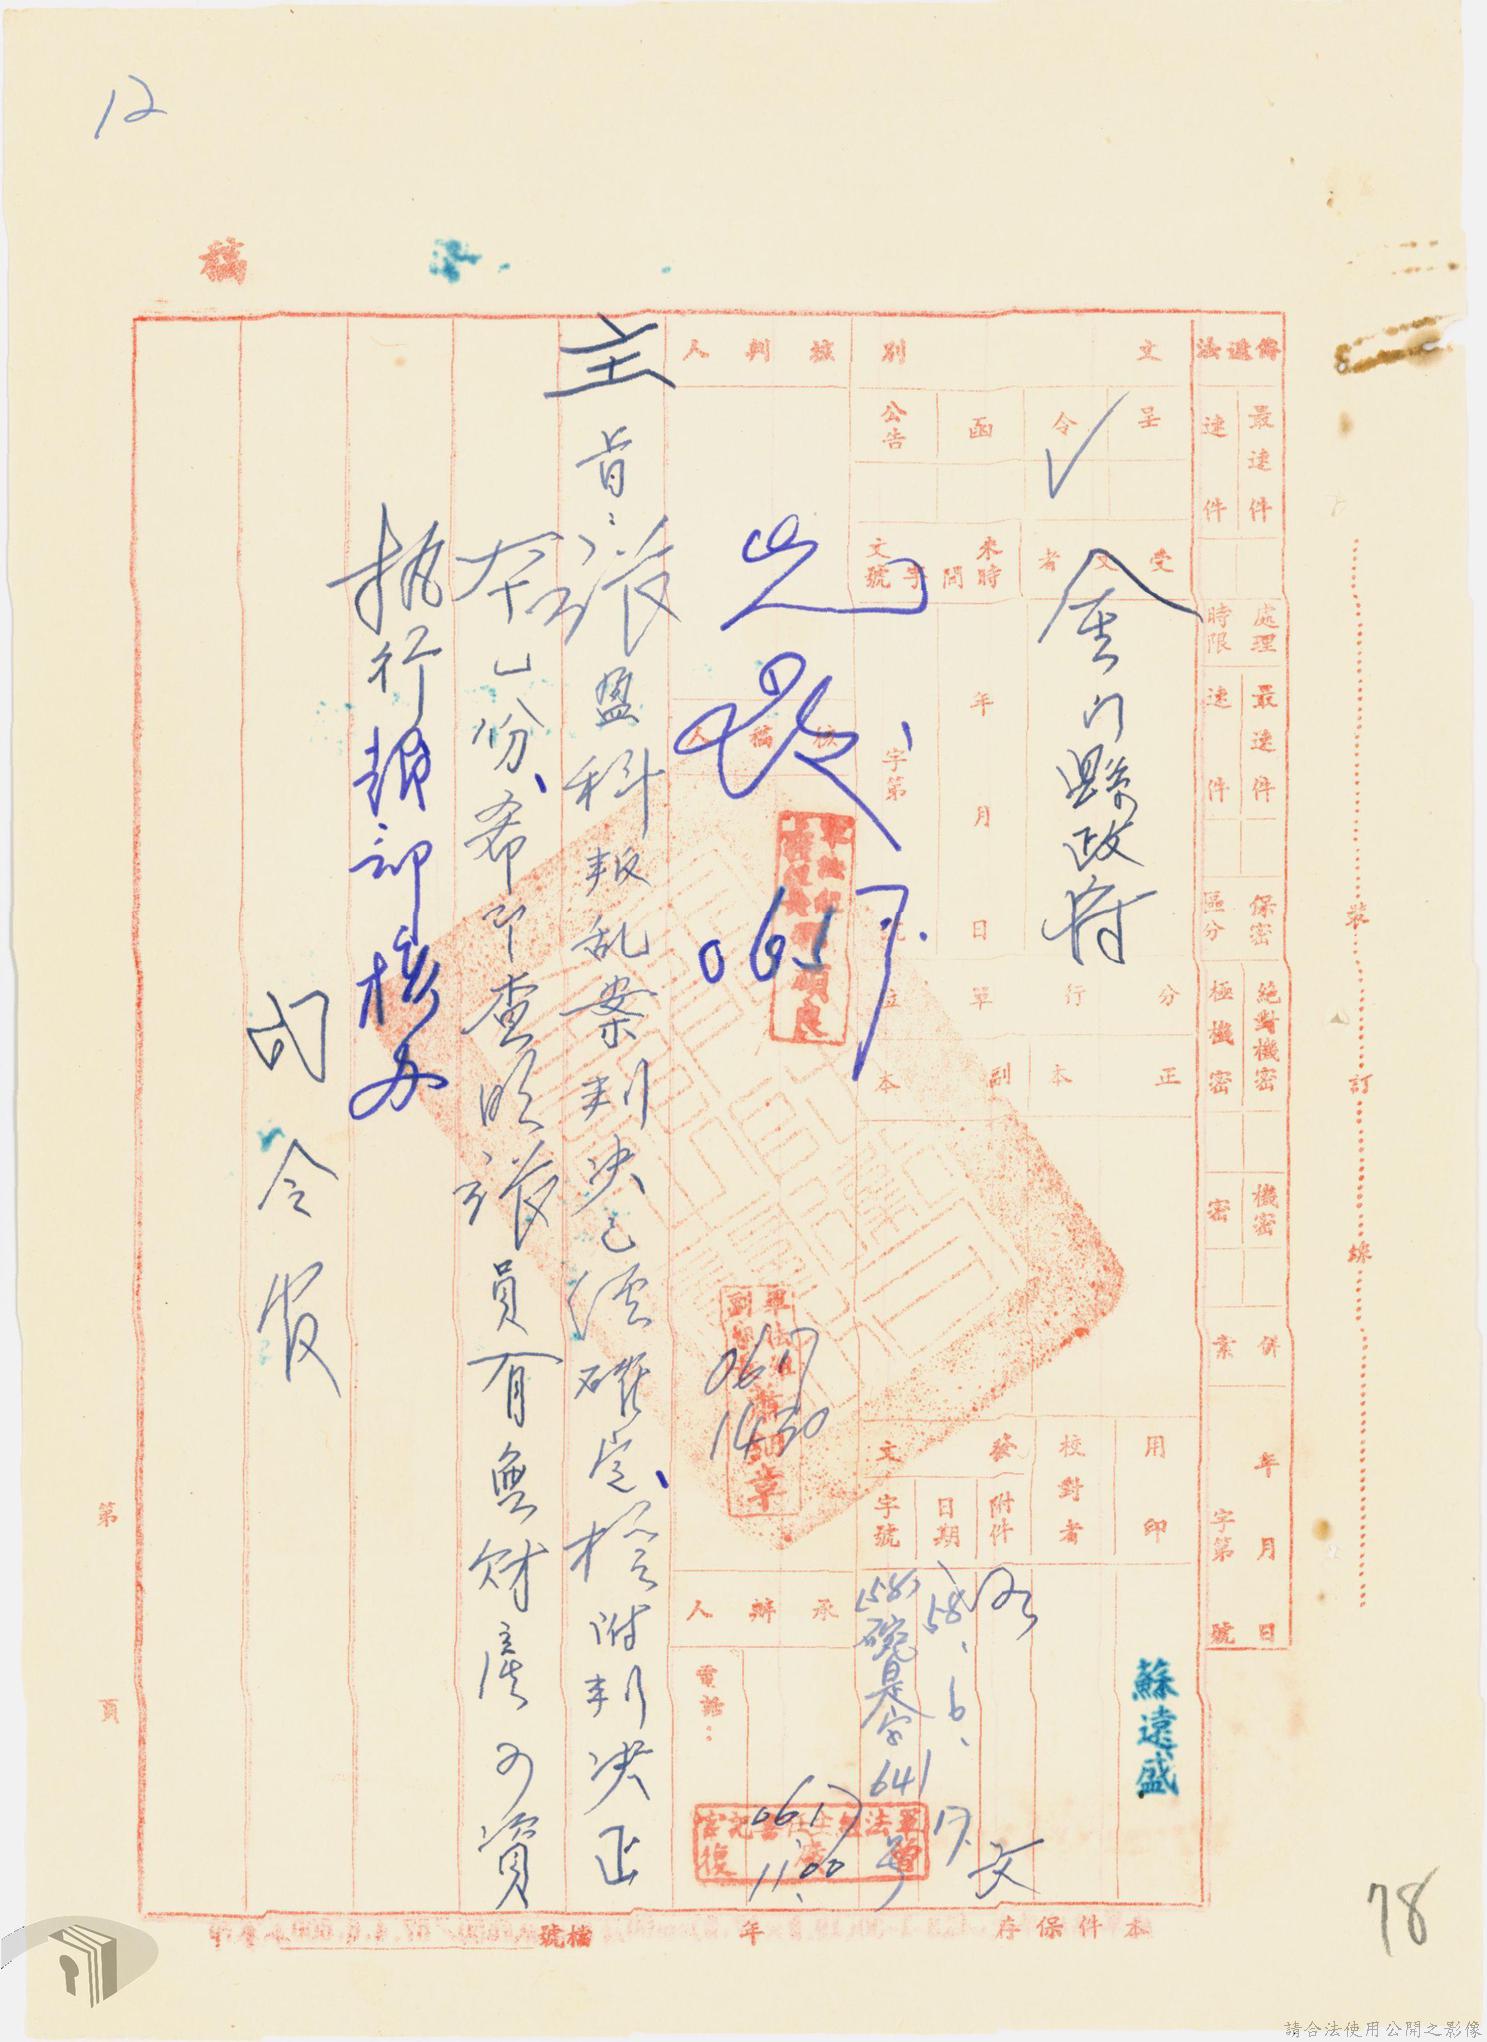 12
稿
傳遞法
最速件
速件
處理時限
最速件
速件
保密區分
絕對機密
極機密
機密
密
併案
年月日
字第 號
文別
呈
令
函
公告
受文者
金門縣政府
來文
時間
字號
年月日
字第 號
分行單位
正本
副本
用印
蘇遠盛
校對者
發文
附件
如文
日期
58.6.17.
字號
(58)
字641号
核判人
核稿人
0617
0617
1430
承辦人
電話:
0617
11.00
主旨:張盈科叛乱案判決已經確定、檢附判決正
本乙份、希即查明張員有無財產可資
執行報部核办
司令
第 頁
本件保存 年
檔號
裝訂線
78
請合法使用公開之影像